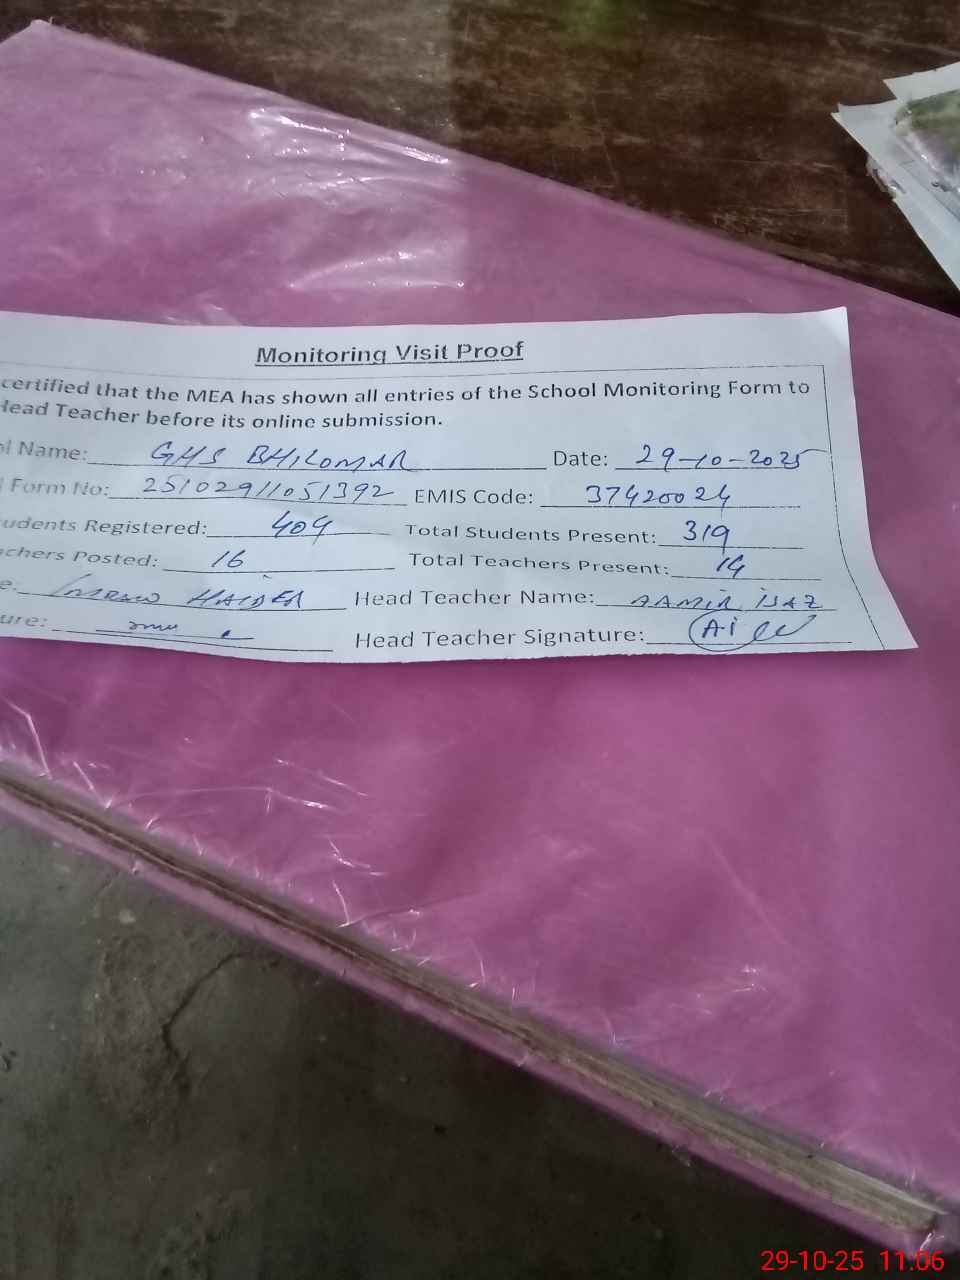 Monitoring Visit Proof
certified that the MEA has shown all entries of the School Monitoring Form to
Head Teacher before its online submission.
ol Name: GHS BHILOMAR Date: 29-10-2025
Form No: 25102911051392 EMIS Code: 37420024
udents Registered: 409 Total Students Present: 319
achers Posted: 16 Total Teachers Present: 14
e: IMRAN HAIDER Head Teacher Name: AAMIR IJAZ
ure: Head Teacher Signature: A.i
29-10-25 11:06